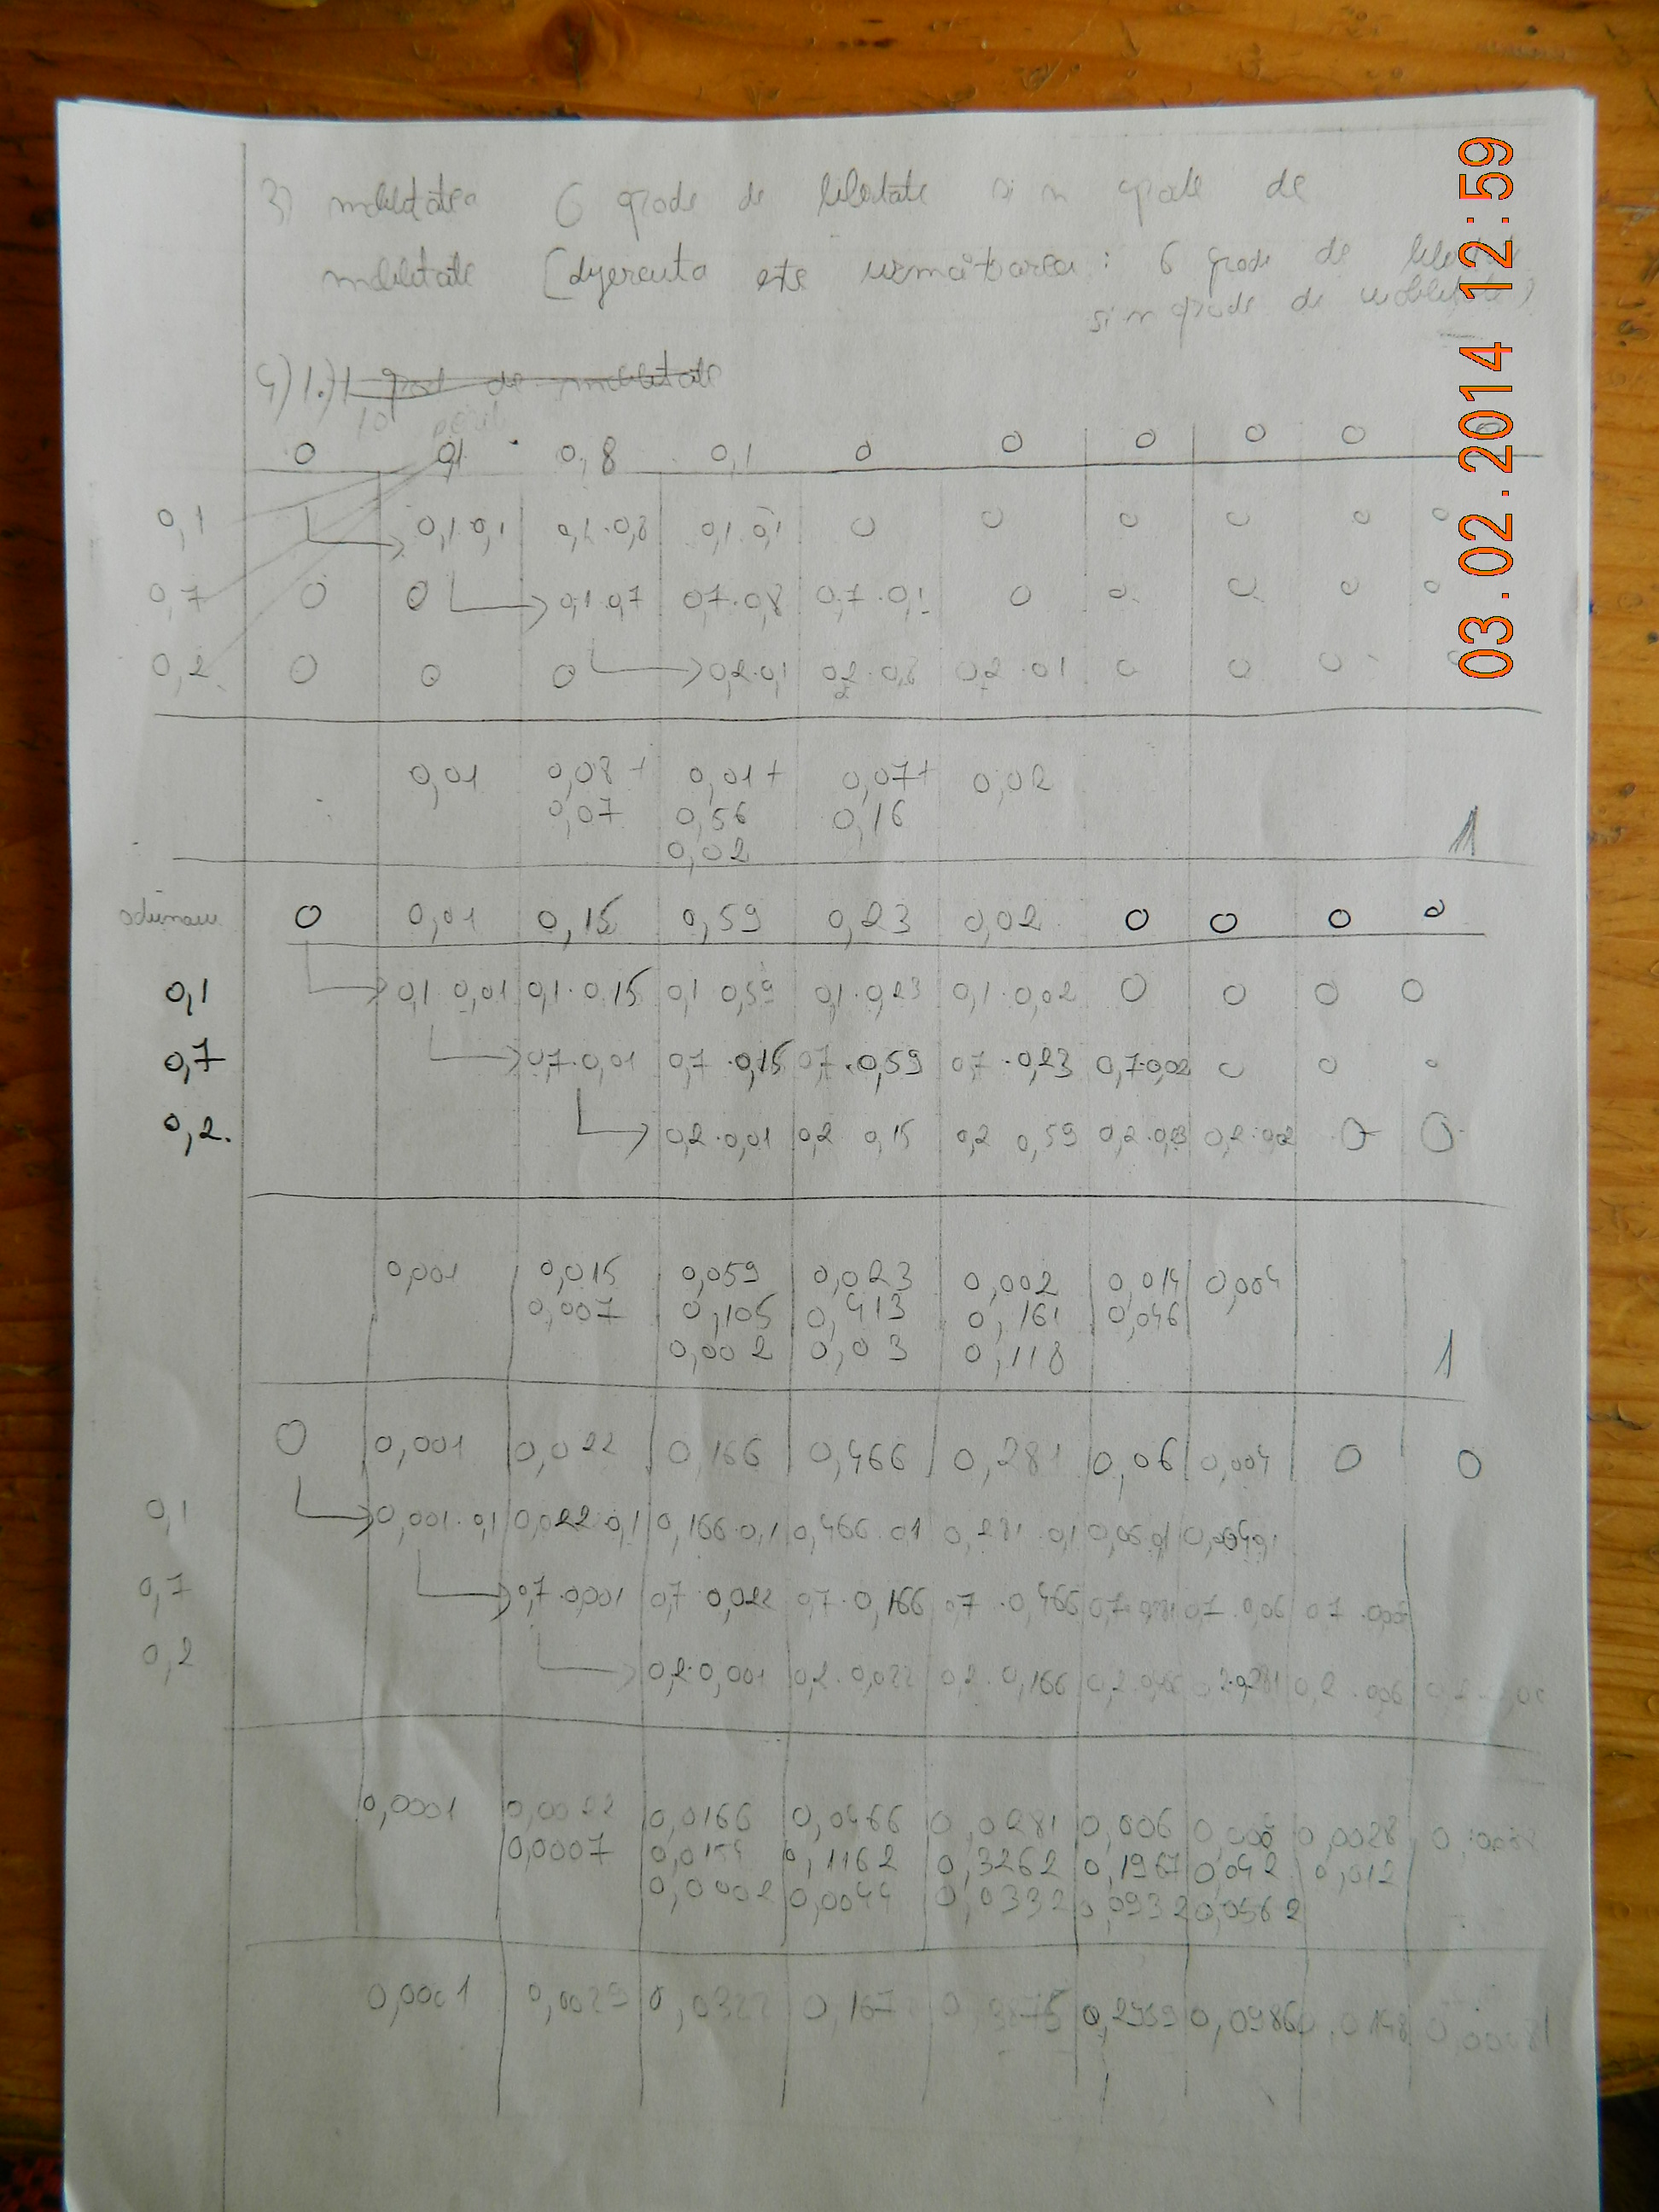 3) mobilitatea 6 grade de libertate si n grade de
mobilitate (diferenta este urmatoarea: 6 grade de libertate
si n grade de mobilitate)
4) 1.) 1 grad de mobilitate
0 0,1 0,8 0,1 0 0 0 0 0 0
0,1 0,1·0,1 0,1·0,8 0,1·0,1 0 0 0 0 0 0
0,7 0 0 0,1·0,7 0,7·0,8 0,7·0,1 0 0 0 0 0
0,2 0 0 0 0,2·0,1 0,2·0,8 0,2·0,1 0 0 0
0,01 0,08+ 0,01+ 0,07+ 0,02
0,07 0,56 0,16
0,02 1
adunam 0 0,01 0,15 0,59 0,23 0,02 0 0 0 0
0,1 0,1·0,01 0,1·0,15 0,1·0,59 0,1·0,23 0,1·0,02 0 0 0 0
0,7 0,7·0,01 0,7·0,15 0,7·0,59 0,7·0,23 0,7·0,02 0 0 0
0,2. 0,2·0,01 0,2 0,15 0,2 0,59 0,2·0,23 0,2·0,02 0 0
0,001 0,015 0,059 0,023 0,002 0,014 0,004
0,007 0,105 0,413 0,161 0,046
0,002 0,03 0,118 1
0 0,001 0,022 0,166 0,466 0,281 0,06 0,004 0 0
0,1 0,001·0,1 0,022·0,1 0,166·0,1 0,466·0,1 0,281·0,1 0,06·0,1 0,004·0,1
0,7 0,7·0,001 0,7·0,022 0,7·0,166 0,7·0,466 0,7·0,281 0,7·0,06 0,7·0,004
0,2 0,2·0,001 0,2·0,022 0,2·0,166 0,2·0,466 0,2·0,281 0,2·0,06
0,0001 0,0022 0,0166 0,0466 0,0281 0,006 0,0028
0,0007 0,0154 0,1162 0,3262 0,1967 0,042 0,012
0,0002 0,0044 0,0332 0,0932 0,0562
0,0001 0,0029 0,0322 0,167 0,3875 0,2959 0,0986 0,0148
03.02.2014 12:59